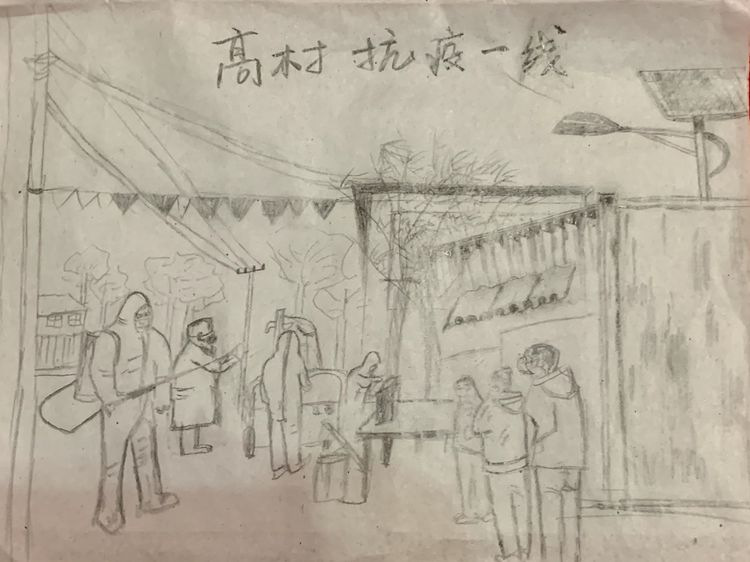 高村 抗疫一线